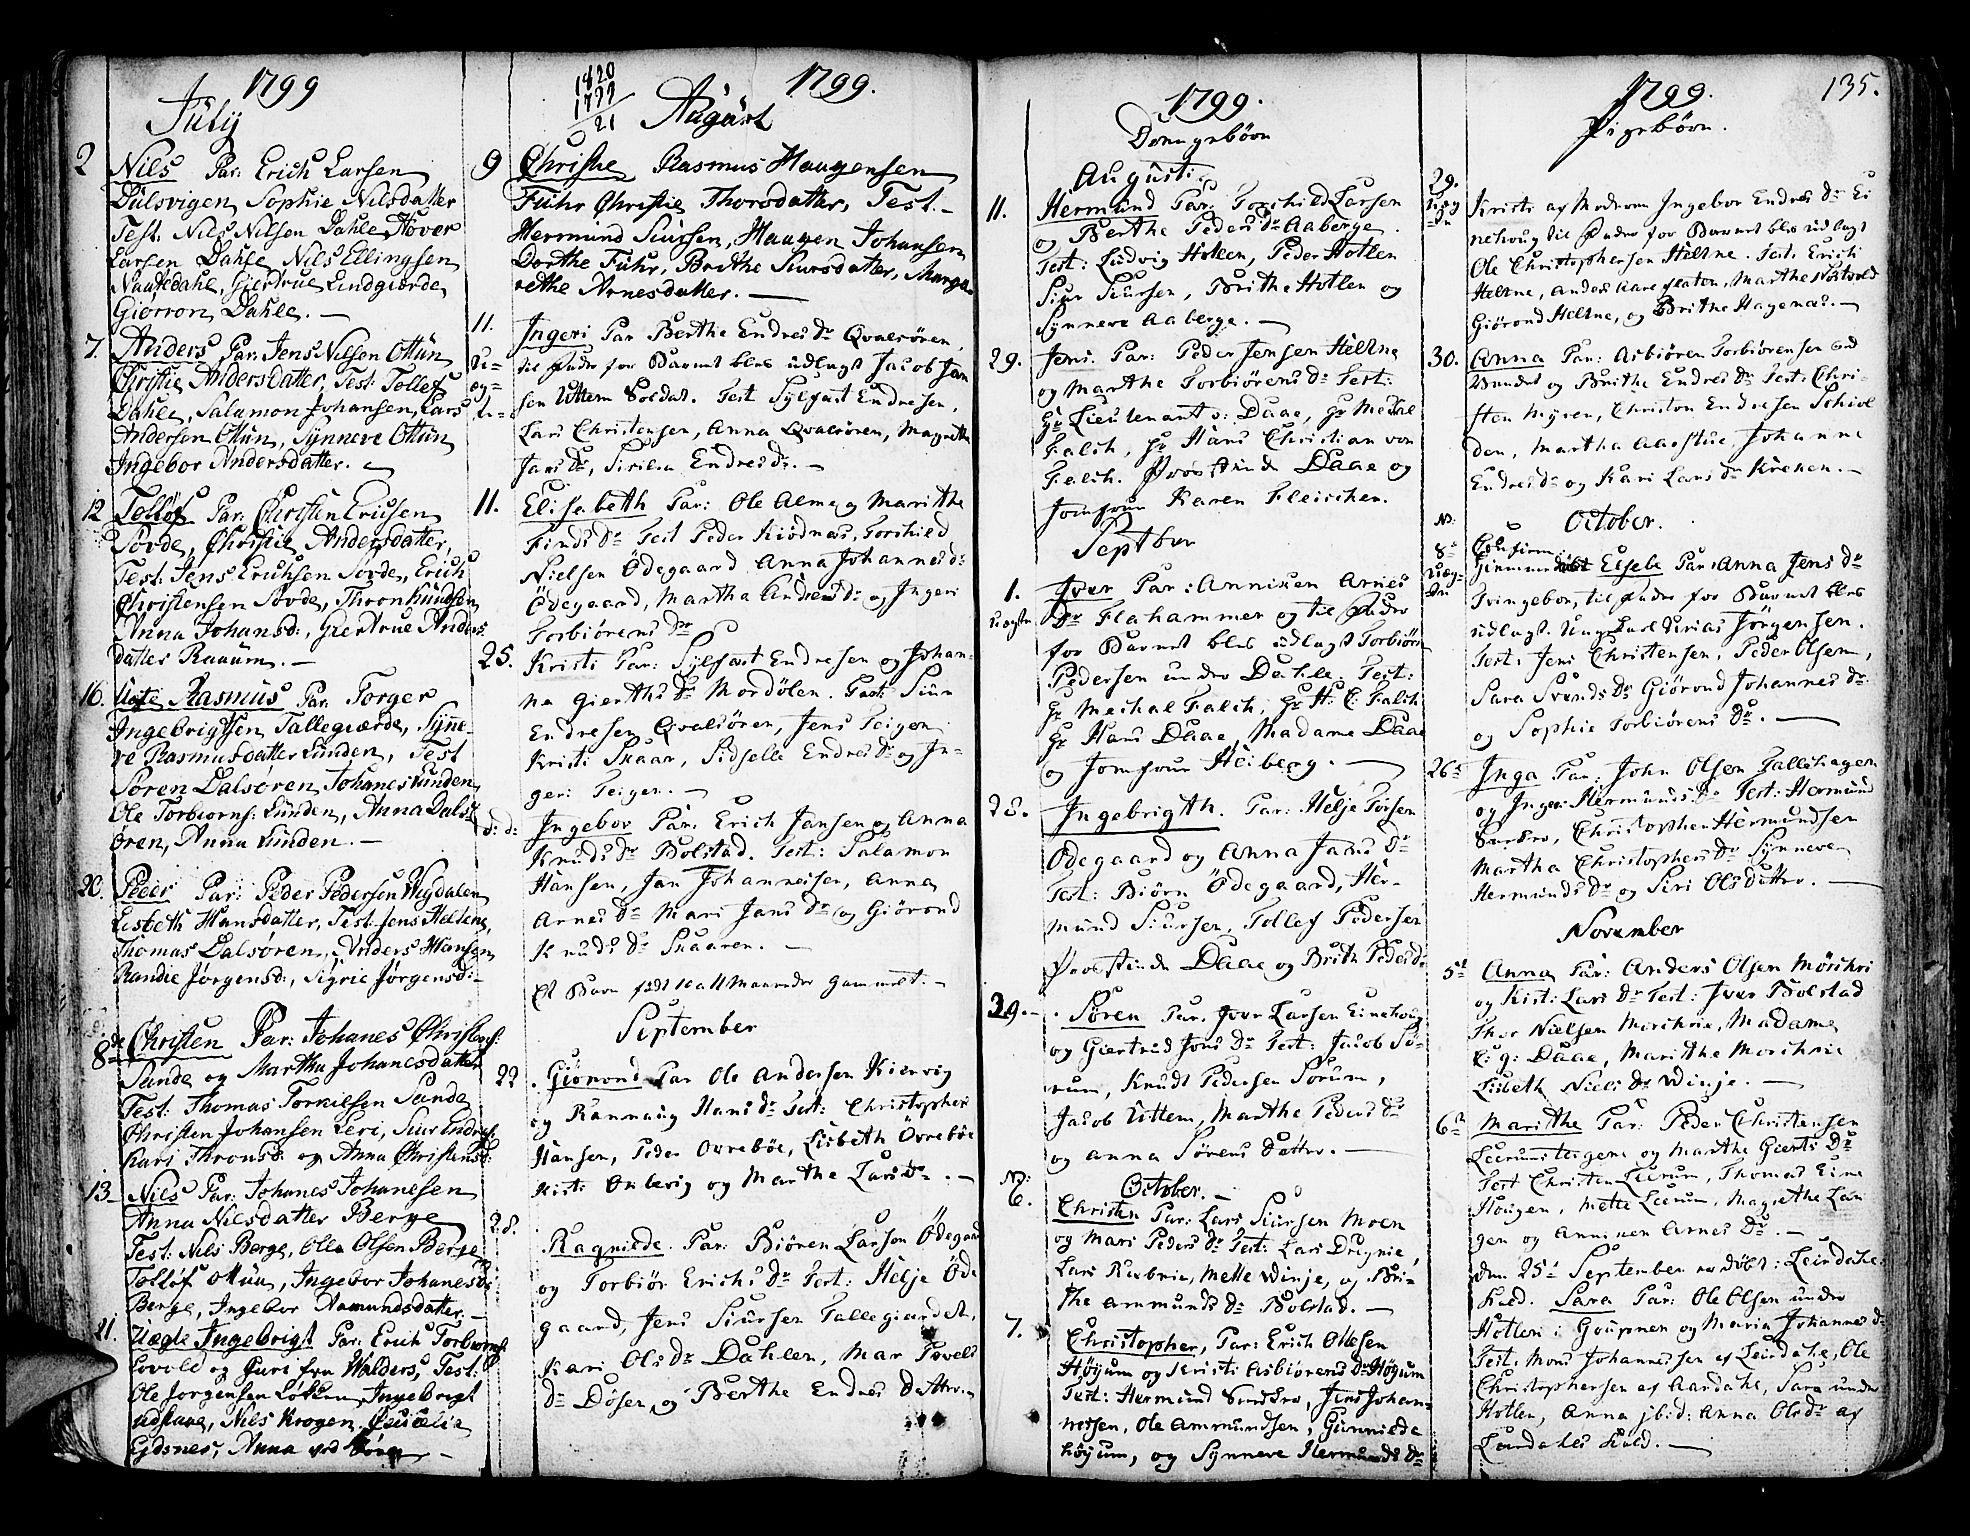 1799
July
2 Nils Par: Erich Larsen
Dulsvigen, Sophie Nilsdatter
Test. Nils Nilsen Dahle, Høver
Larsen Dahle, Nils Ellingsen
Naafedahl, Giertrue Lindgiærde,
Giørron Dahle. —
7. Anders Par. Jens Nilsen Ottun
Christie Andersdatter, Test: Tollef
Dahle, Salamon Johansen, Lars
Andersen Ottun, Synneve Ottun
Ingebor Andersdatter.
12 Tollof Par: Christen Ericsen
Sovde, Christie Andersdatter,
Test: Jens Erichsen Sovde, Erich
Christensen Sovde, Thron Knudsen
Anna Johansd:, Giertrue Anders
datter Raaum. —
16. Rasmus Par. Torger
Ingebrigtsen Tallegiærde, Synne-
ve Rasmusdatter Lunden, Test
Søren Dalsøren, Johanes Lunden
Ole Torbiorns: Lunden, Anna Dals
øren, Anna Lunden. —
20. Peder Par: Peder Pedersen Wigdalen
Lisbeth Hansdatter, Test. Jens Heltene,
Thomas Dalsøren, Anders Hansen
Randie Jørgensd:, Sigrie Jørgensd: —
8de Christen Par: Johanes Christens:
Sande og Martha Johanesdatter
Test: Thomas Torkielsen Sande
Christen Johansen Leri, Siur Endres
Kari Thronsd: og Anna Christensd:
13 Nils Par: Johanes Johanesen
Anna Nilsdatter Berge
Test: Nils Berge, Olle Olsen Berge
Tollof Ottun, Ingebor Johanesd:
Berge, Ingebor Aamundsdatter
21. Uægte Ingebrigt Par: Erich Torbiorns:
Lovold og Guri fra Walders, Test:
Ole Jorgensen Løkken, Ingebrigt
Nils Krogen,
Eydsnes, Anna
1820
1799
21
1799.
August
9 Christie Rasmus Haagensen
Fuhr Christie Thorsdatter, Test. —
Hermund Siursen, Haagen Johansen
Dorthe Fuhr, Brithe Siursdatter, Marga
rethe Arnesdatter. —
11. Ingeri Par Berthe Endresdr Qvalsøren,
til Fader for Barnet blev udlagt Jacob Jan
sen Uttem Soldat. Test Sylfast Endresen,
Lars Christensen, Anna Qvalsøren, Magrethe
Jans Dr, Sirilsa Endresdr. —
11. Elisabeth Par: Ole Alme og Marithe
Finds Dr Test Peder Kiødnes, Torchied
Nielsen Ödegaard Anna Johannesdr
Ödegaard, Martha Andersdr og Ingeri
Torbiørens dr
25. Kristi Par: Sylfast Endresen og Johan-
na Gierths Dr Mordølen. Test: Siur
Endresen Qvalsören, Jens Teigen
Kristi Skaar, Sidselle Endresdr og In-
geri Teigen. —
d: d: Ingebor Par: Erich Jansen og Anna
Knuds Dr Bolstad. Test: Salamon
Hansen, Jan Johannesen, Anna
Arnes Dr Mari Jans Dr og Giørond
Knuds Dr Skaaren. —
Et Barn født 10 a 11 Maaneder gammel. —
September
22 Giørond Par Ole Andersen Kiervig
og Rannaug Hans Dr Test: Christopher
Hansen, Peder Ovrebøe, Lisbeth Övrebøe
Kisti og Marthe Larsdr. —
28. Ragniede. Par: Biören Larsen Ödegaard
og Torbiör Erichs Dr Test: Helje Öde
gaard, Jens Siursen Tallegiardet,
Kari Ols Dr Dahlen, Mar Povels
Dr Døsen og Berthe Endres Datter.
1799.
Drengebørn
August:
11. Hermund Par: Torchild Larsen
og Berthe Peders Dr Aaberge.
Test: Ludvig Hotlen, Peder Hotlen
Siur Siursen, Brithe Hotlen og
Synneve Aaberge. —
29. Jens. Par: Peder Jensen Heltne
og Marthe Torbiørens Dr Test:
Hr Lieutenant v: Daae, Hr Mechal
Falch, Hr Hans Christian von
Falch. Provstinde Daae og
Jomfrue Karen Fleischer.
Septber
1. Iver Par: Anniken Arnes
Dr Flahammer og til Fader
for Barnet blev udlagt Torbiørn
Pedersen under Dahle Test:
Hr Mechal Falch, Hr H: C: Falch
Hr Hans Daae, Madame Daae
og Jomfrue Heiberg. —
28. Ingebrigth. Par: Helje Torsen
Ödegaard og Anna Jans Dr
Test: Biørn Ödegaard, Her-
mund Siursen, Tollef Pedersen
Provstinde Daae og Brith Pedersdr
29. Søren Par. Iver Larsen Einehoug
og Giertrud Jons Dr Test: Jacob Sö-
rum, Knudt Pedersen Sörum,
Jacob Uttem, Marthe Peders Dr
og Anna Sörens Datter. —
October. —
6. Christen Par: Lars Siursen Moen
og Mari Peders Dr Test: Lars
Lars Mette Winje, og Bri-
the Ammunds Dr Bolstad. —
7. Christopher, Par: Erich Ollesen
Høyum og Kristi Asbiørens Dr Høyum
Test: Hermund Jens Johan-
nessen, Ole Ammundsen, Gunniede
Höyum, og Synneve Hermunds Dr
1799.
135.
Pigebørn.
29. Uægte
Kristi af Moderen Ingebor Endres Dr Ei
nehoug til Fader for Barnet blev udlagt
Ole Christophersen Heltne. Test: Erich
Heltne, Anders Aaresflaten, Marthe Natvold
Giörond Heltne, og Brithe Hagenæs. —
30. Anna Par: Asbiören Torbiörensen
og Brithe Endres Dr Test: Chri-
sten Myren, Christen Endresen Schiol
den, Martha Johanna
Endresdr og Kari Lars Dr Krenen. —
October.
8de Uægte
Elsebe Par: Anna Jens Dr
til Fader for Barnet blev
udlagt. Ungkarl Jörgensen.
Test: Jens Christensen, Peder Olsen,
Sara Svends Dr Giörond Johannes Dr
og Sophie Torbiörens Dr. —
26de Inga Par: John Olsen Tallehagen
og Inger Hermunds Dr Test: Hermund
Christopher Hermundsen
Martha Christophers Dr Synneve
Hermunds Dr og Siri Olsdatter. —
November
5te Anna Par: Anders Olsen Mörchri
og Kist: Lars Dr Test: Iver Bolstad
Thor Nielsen Mörchrie, Madame
Daae, Marithe Morchrie
Lisbeth Niels Dr Winje. —
6te Marithe Par: Peder Christensen
Leerumsteigene og Marthe Gierts Dr
Test Christen Leerum, Thomas Eine
Hougen, Mette Leerum, Magrethe Lan
gen og Anniken Arnes Dr. —
Den 25de September er döbt i Leirdahls
Kald. Sara Par: Ole Olsen under
Hotlen i Goupnen og Maria Johannes Dr
Test: Mons Johannessen af Leirdahl, Ole
Christophersen af Aardahl, Sara under
Hotlen, Anna ibid: Anna Olsdr af
Leirdahls Kald. —